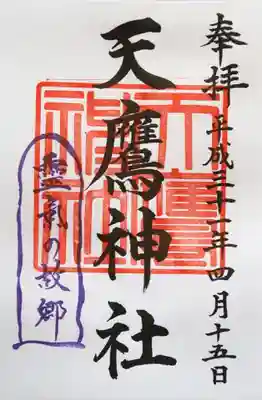 奉拝 平成三十一年四月十五日
天鷹神社
天鷹神社
霊氣の故郷